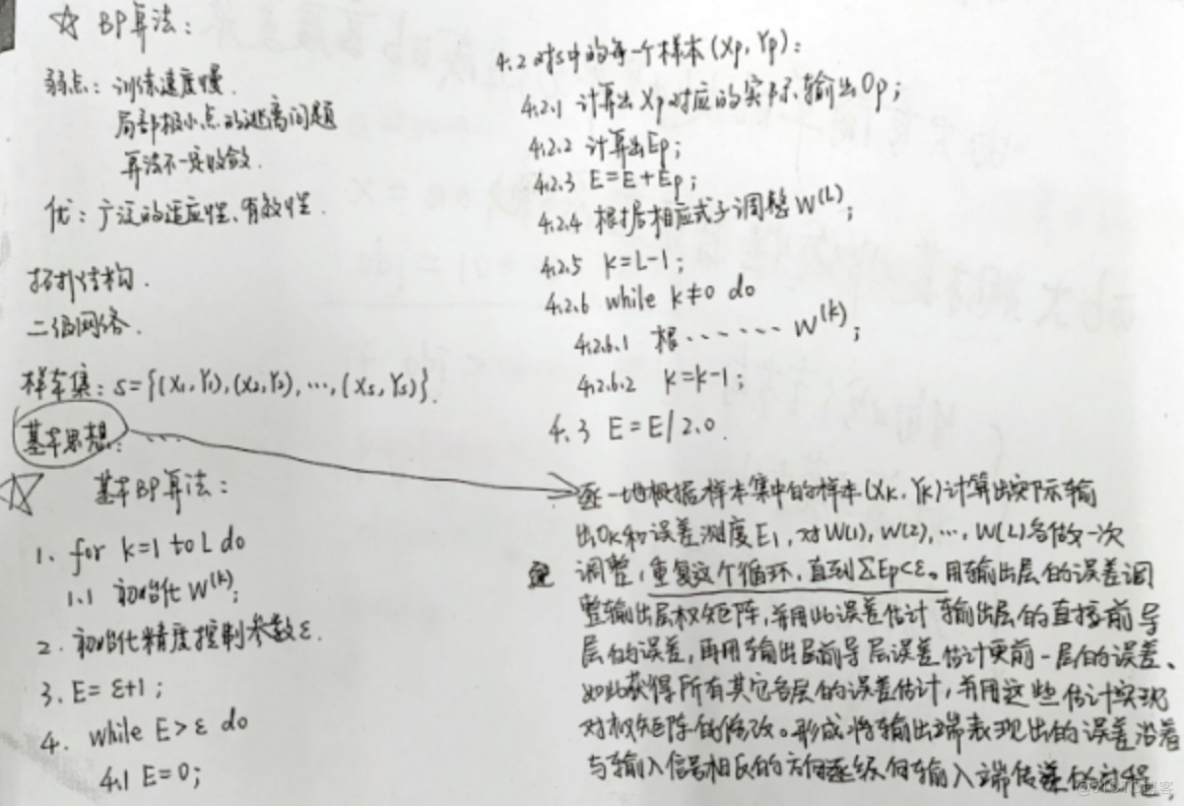 ☆ BP算法：
弱点：训练速度慢.
局部极小点的逃离问题
算法不一定收敛.
优：广泛的适应性、有效性.
拓扑结构.
二级网络.
样本集：S={(X₁,Y₁),(X₂,Y₂),…,(Xs,Ys)}.
基本思想：
☆ 基本BP算法：
1. for k=1 to L do
1.1 初始化 W^(k);
2. 初始化精度控制参数ε.
3. E= ε+1;
4. while E>ε do
4.1 E=0;
4.2 对S中的每一个样本(Xp,Yp)：
4.2.1 计算出Xp对应的实际输出Op;
4.2.2 计算出Ep;
4.2.3 E=E+Ep;
4.2.4 根据相应式子调整W^(L);
4.2.5 k=L-1;
4.2.6 while k≠0 do
4.2.6.1 根······W^(k);
4.2.6.2 k=k-1;
4.3 E=E/2.0
逐一地根据样本集中的样本(Xk,Yk)计算出实际输
出Ok和误差测度E1,对W(1),W(2),…,W(L)各做一次
调整,重复这个循环,直到∑Ep<ε。用输出层的误差调
整输出层权矩阵,并用此误差估计输出层的直接前导
层的误差,再用输出层前导层误差估计更前一层的误差、
如此获得所有其它各层的误差估计,并用这些估计实现
对权矩阵的修改。形成将输出端表现出的误差沿着
与输入信号相反的方向逐级向输入端传递的过程,